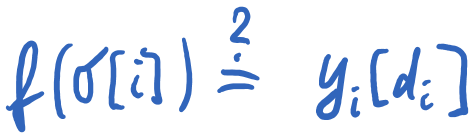 f(σ[i]) ≟ y_i[d_i]